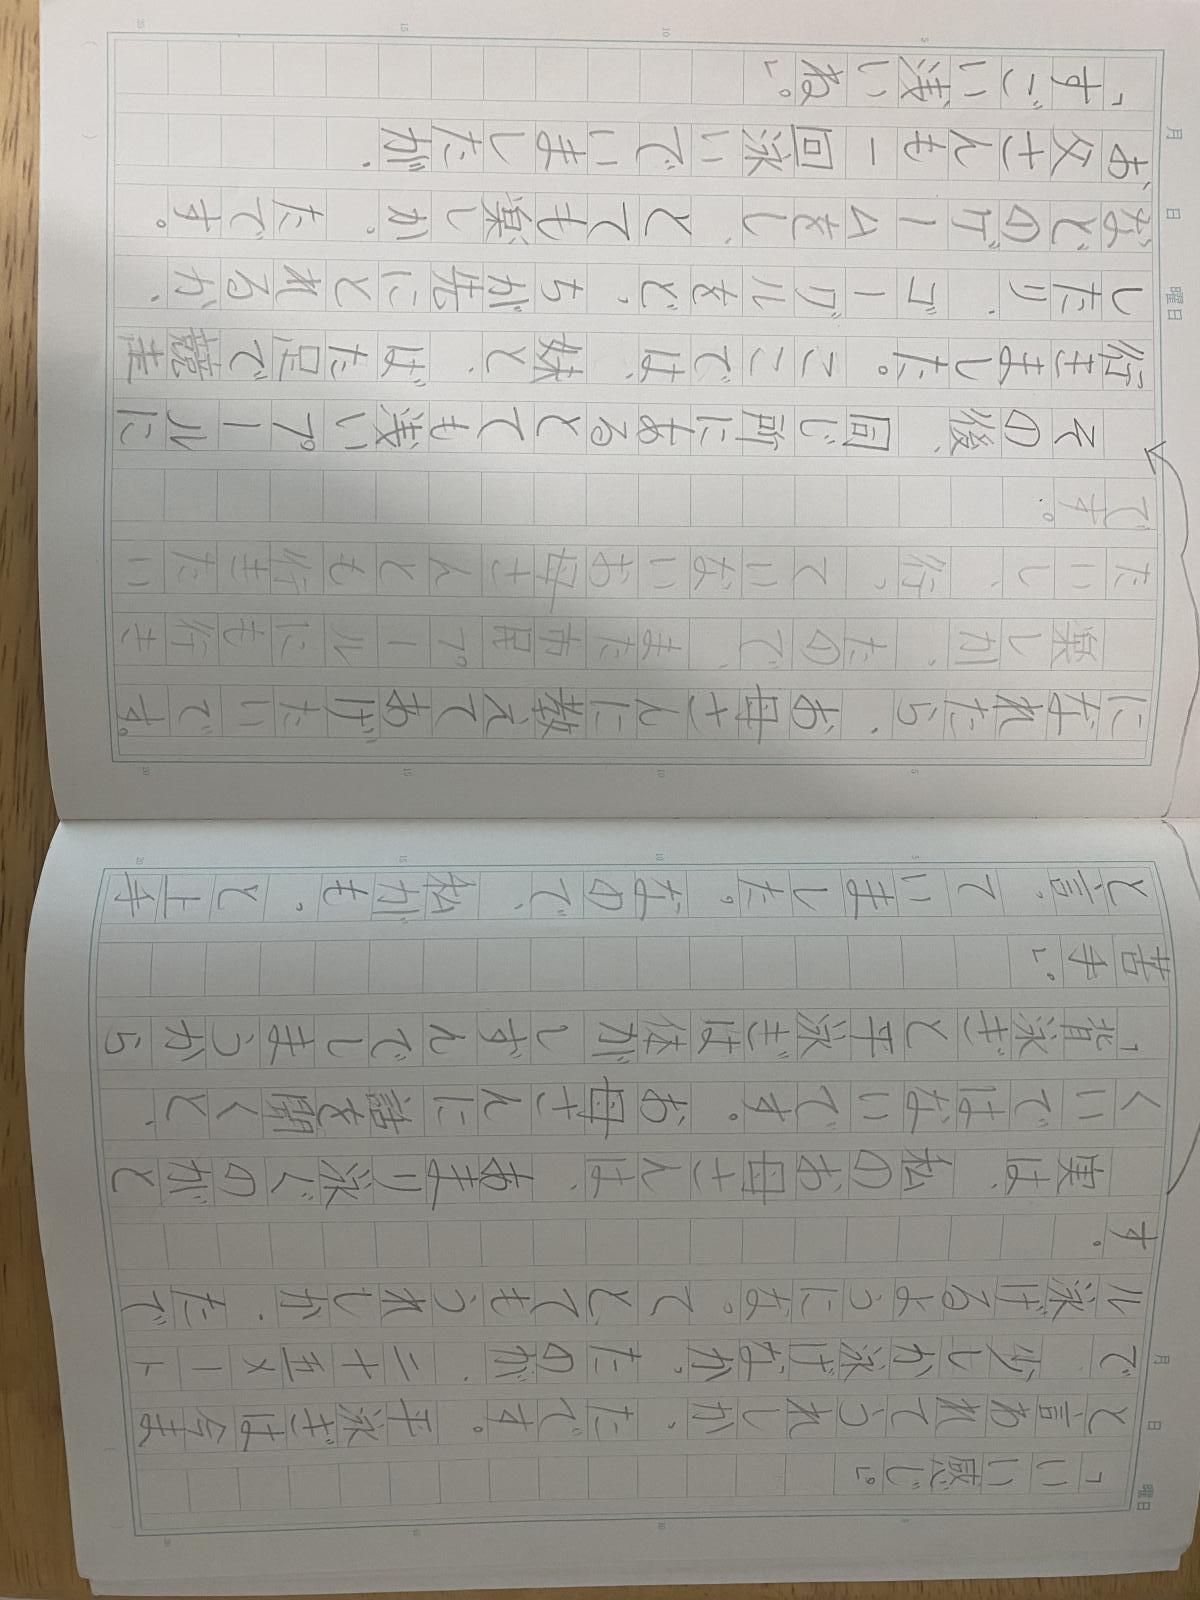 月 日 曜日
「いい感じ。」
と言われてうれしかったです。平泳ぎは今ま
で少しか泳げなかったのが、二十五メート
ル泳げるようになってとてもうれしかったで
す。
実は、私のお母さんは、あまり泳ぐのがと
くいではないです。お母さんに話を聞くと、
「背泳ぎと平泳ぎは体がしずんでしまうから
苦手。」
と言っていました。なので、私がもっと上手
になれたら、お母さんに教えてあげたいです。
楽しかったので、また市民プールにも行き
たいし、行っていないお母さんとも行きたい
です。
その後、同じ所にあるとても浅いプールに
行きました。ここでは、妹と、ばた足で競走
したり、ゴーグルをどっちが先にとれるか、
などのゲームをし、とても楽しかったです。
お父さんも一回泳いでいましたが、
「すごい浅いね。」
月 日 曜日